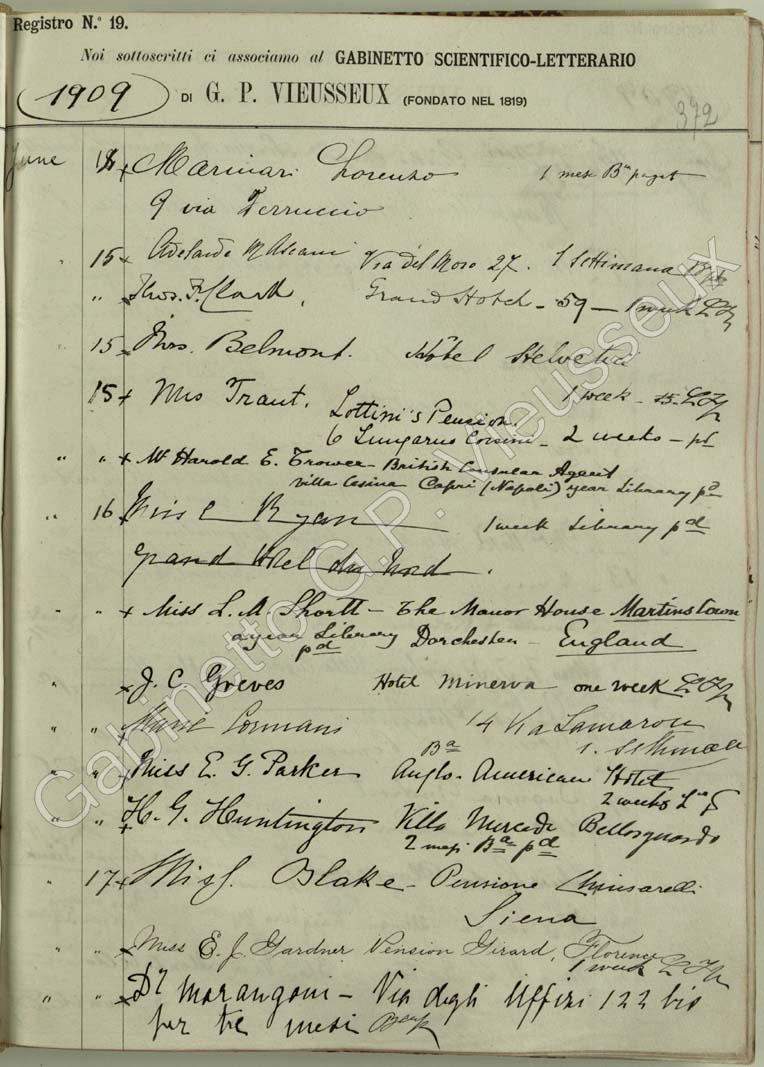 Registro N.° 19.
Noi sottoscritti ci associamo al GABINETTO SCIENTIFICO-LETTERARIO
1909 DI G. P. VIEUSSEUX (FONDATO NEL 1819)
372
June Marinari Lorenzo 1 mese
9 via Ferruccio
" 15 Adelaide Via del Moro 27. 1 Settimana
" Thos. F. Clark, Grand Hotel - 59 - 1 week
15 Mrs. Belmont. Hôtel Helvetia
15 Mrs Traut. 1 week
Lottini's Pension.
6 Lungarno Corsini - 2 weeks - pd
" " Mr Harold E. Trower - British Consular Agent
Villa Cesina Capri (Napoli) year Library pd
" 16 Miss Ryan 1 week Library pd
Grand Hotel du Nord.
" " Miss L. M. Shortt - The Manor House Martinstown
a year Library Dorchester - England
pd
" J. C. Greves Hotel Minerva one week
" " Marie 14 Via Lamarmora
1. Settimana
" " Miss E. G. Parker Anglo-American Hotel
2 weeks
" " H. G. Huntington Villa Mercede Bellosguardo
2 mesi Ba pd
" 17 Miss. Blake - Pensione Chiusarelli
Siena
" " Miss E. J. Gardner Pension Girard, Florence
1 week
" " Dr Marangoni - Via degli Uffizi 122 bis
per tre mesi
Gabinetto G.P. Vieusseux